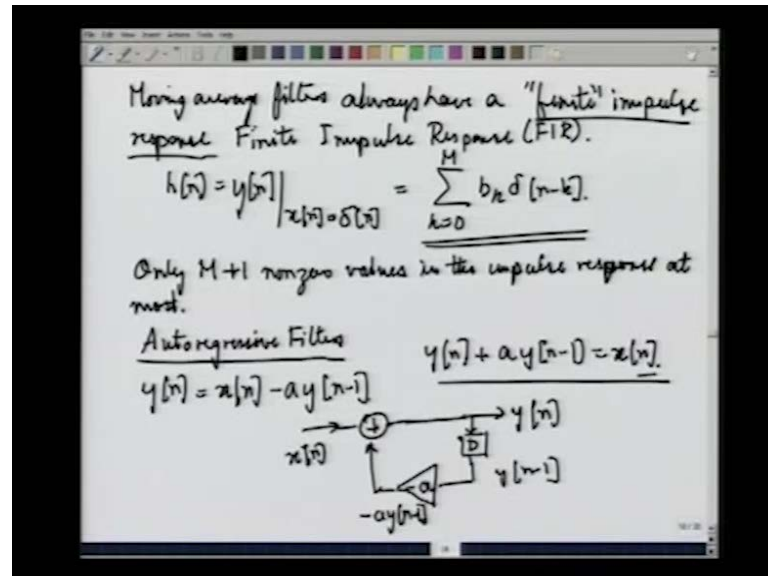 Moving average filters always have a "finite" impulse
response Finite Impulse Response (FIR).
h[n] = y[n]|x[n]=δ[n] = M ∑ k=0 bk δ[n-k].
Only M+1 nonzero values in the impulse response at
most.
Autoregressive Filters
y[n] + ay[n-1] = x[n].
y[n] = x[n] - ay[n-1]
x[n] + y[n]
D
y[n-1]
-a
-ay[n-1]